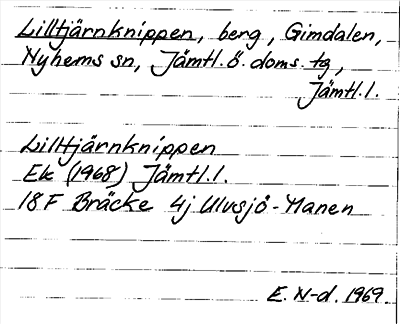 Lilltjärnknippen, berg, Gimdalen,
Nyhems sn, Jämtl. ö. doms. tg,
Jämtl. l.
Lilltjärnknippen
Ek (1968) Jämtl. l.
18 F Bräcke 4j Ulvsjö-Manen
E. N-d. 1969